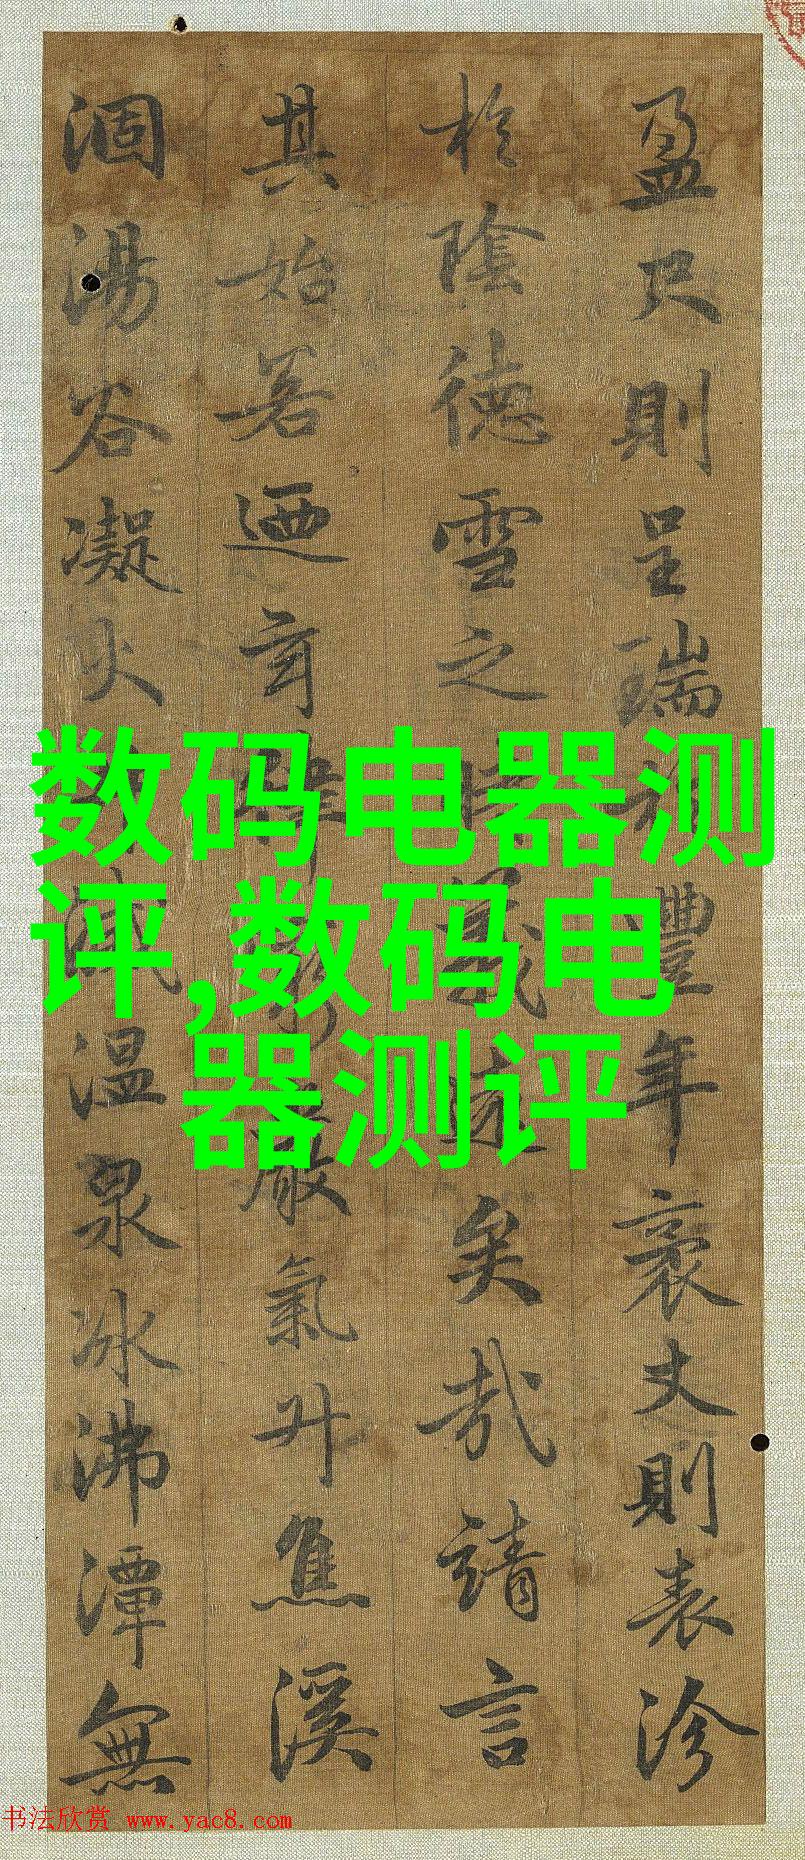 盈尺則呈瑞於豐年袤丈則表沴
於陰德雪之義遠矣哉請言
其始若迺玄律嚴氣升焦溪
涸湯谷凝火滅溫泉冰沸潭無
数码电器测
评,数码电
器测评
书法欣赏 www.yac8.com